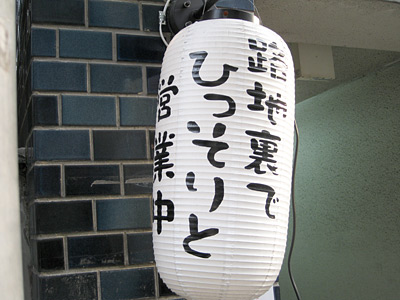 路地裏で
ひっそりと
営業中